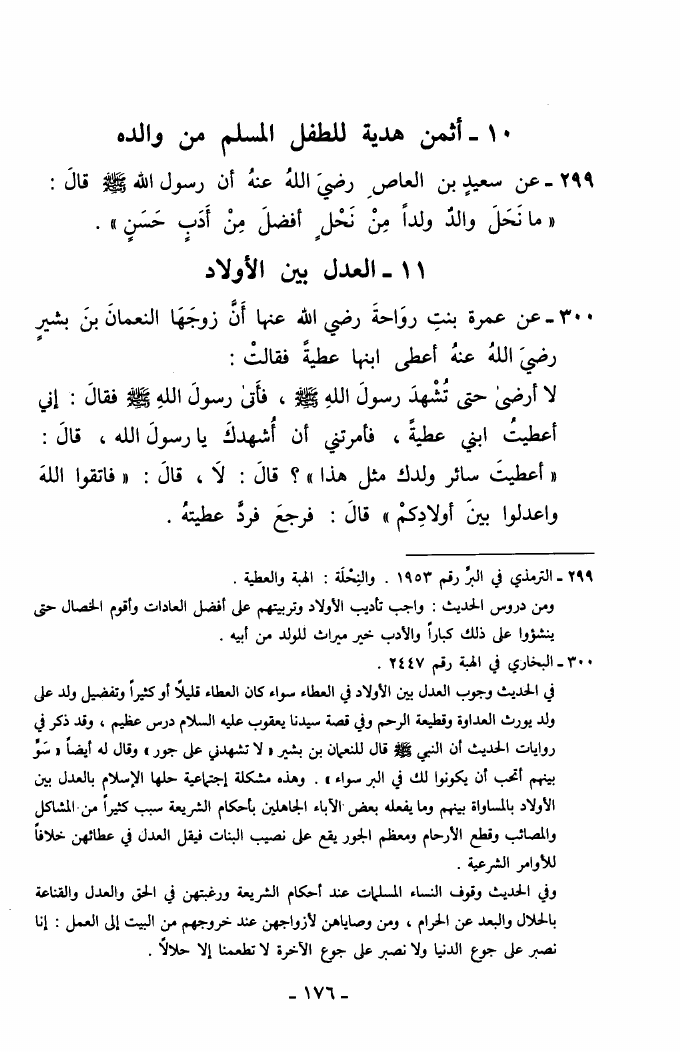 ١٠ - أثمن هدية للطفل المسلم من والده
٢٩٩ - عن سعيدٍ بن العاصِ رضيَ اللهُ عنهُ أن رسول الله ﷺ قالَ :
« ما نَحَلَ والدٌ ولداً مِنْ نَحْلٍ أفضلَ مِنْ أَدَبٍ حَسَنٍ » .
١١ - العدل بين الأولاد
٣٠٠ - عن عمرة بنتِ روَاحةَ رضي الله عنها أَنَّ زوجَهَا النعمانَ بنَ بشيرٍ
رضيَ اللهُ عنهُ أعطى ابنها عطيةً فقالتْ :
لا أرضىٰ حتى تُشْهدَ رسولَ اللهِ ﷺ ، فأَتىٰ رسولَ اللهِ ﷺ فقالَ : إني
أعطيتُ ابني عطيةً ، فأمرتني أن أُشهدكَ يا رسولَ الله ، قالَ :
« أعطيتَ سائر ولدك مثل هذا » ؟ قالَ : لَا ، قالَ : « فاتقوا اللهَ
واعدلوا بينَ أولادِكمْ » قالَ : فرجعَ فردَّ عطيتهُ .
٢٩٩ - الترمذي في البرِّ رقم ١٩٥٣ . والنِحْلَة : الهبة والعطية .
ومن دروس الحديث : واجب تأديب الأولاد وتربيتهم على أفضل العادات وأقوم الخصال حتى
ينشؤوا على ذلك كباراً والأدب خير ميراث للولد من أبيه .
٣٠٠ - البخاري في الهبة رقم ٢٤٤٧ .
في الحديث وجوب العدل بين الأولاد في العطاء سواء كان العطاء قليلاً أو كثيراً وتفضيل ولد على
ولد يورث العداوة وقطيعة الرحم وفي قصة سيدنا يعقوب عليه السلام درس عظيم ، وقد ذكر في
روايات الحديث أن النبي ﷺ قال للنعمان بن بشير « لا تشهدني على جور » وقال له أيضاً « سَوِّ
بينهم أتحب أن يكونوا لك في البر سواء » . وهذه مشكلة إجتماعية حلها الإسلام بالعدل بين
الأولاد بالمساواة بينهم وما يفعله بعض الآباء الجاهلين بأحكام الشريعة سبب كثيراً من المشاكل
والمصائب وقطع الأرحام ومعظم الجور يقع على نصيب البنات فيقل العدل في عطائهن خلافاً
للأوامر الشرعية .
وفي الحديث وقوف النساء المسلمات عند أحكام الشريعة ورغبتهن في الحق والعدل والقناعة
بالحلال والبعد عن الحرام ، ومن وصاياهن لأزواجهن عند خروجهم من البيت إلى العمل : إنا
نصبر على جوع الدنيا ولا نصبر على جوع الآخرة لا تطعمنا إلا حلالاً .
- ١٧٦ -